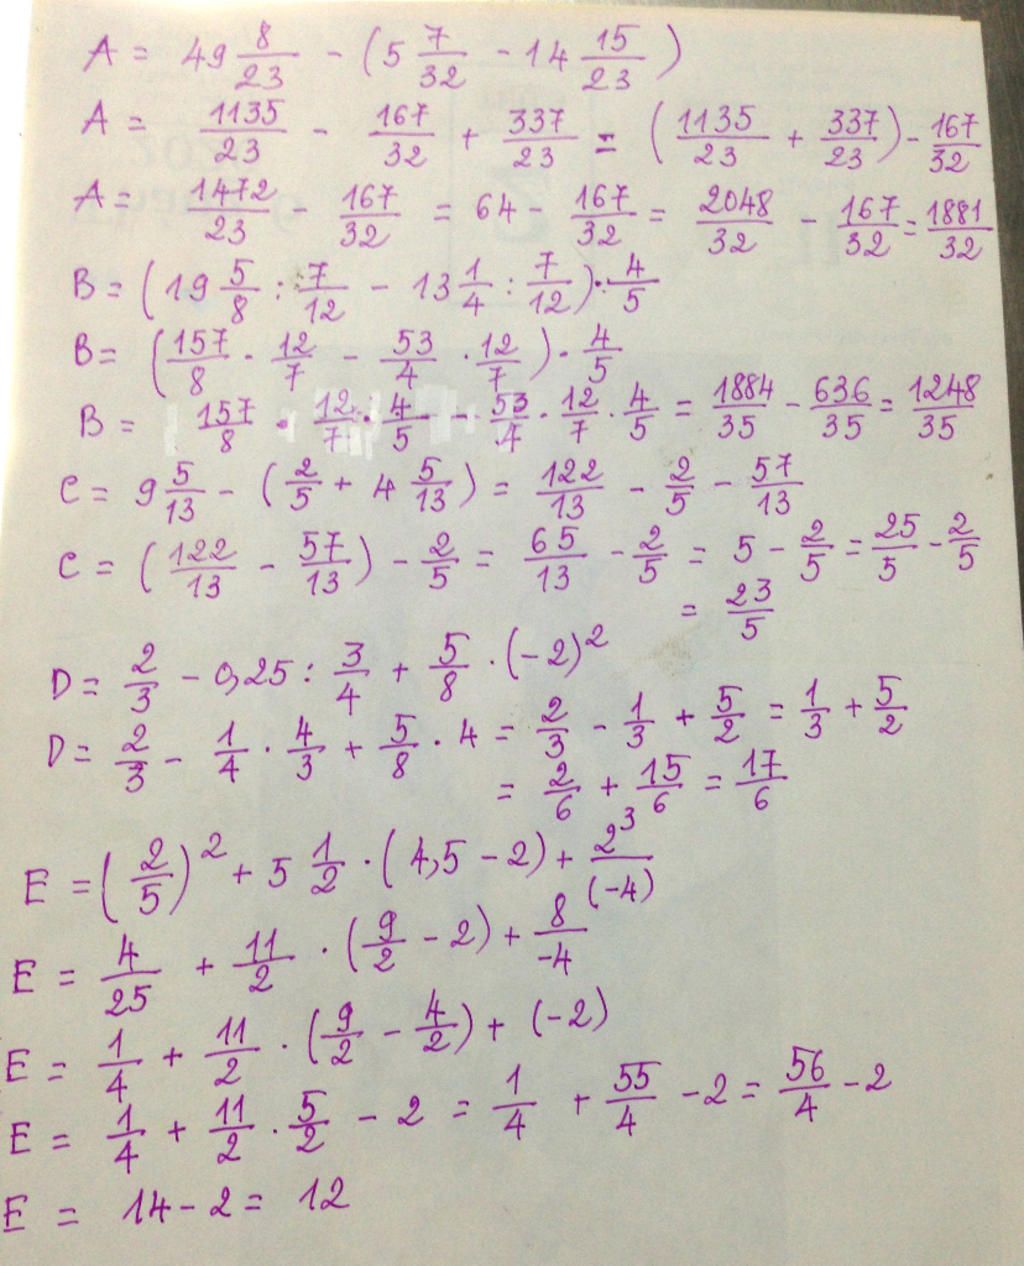 A = 49 8/23 - (5 7/32 - 14 15/23)
A = 1135/23 - 167/32 + 337/23 = (1135/23 + 337/23) - 167/32
A = 1472/23 - 167/32 = 64 - 167/32 = 2048/32 - 167/32 = 1881/32
B = (19 5/8 : 7/12 - 13 1/4 : 7/12) · 4/5
B = (157/8 · 12/7 - 53/4 · 12/7) · 4/5
B = 157/8 · 12/7 · 4/5 - 53/4 · 12/7 · 4/5 = 1884/35 - 636/35 = 1248/35
C = 9 5/13 - (2/5 + 4 5/13) = 122/13 - 2/5 - 57/13
C = (122/13 - 57/13) - 2/5 = 65/13 - 2/5 = 5 - 2/5 = 25/5 - 2/5
= 23/5
D = 2/3 - 0,25 : 3/4 + 5/8 · (-2)²
D = 2/3 - 1/4 · 4/3 + 5/8 · 4 = 2/3 - 1/3 + 5/2 = 1/3 + 5/2
= 2/6 + 15/6 = 17/6
E = (2/5)² + 5 1/2 · (4,5 - 2) + 2³/(-4)
E = 4/25 + 11/2 · (9/2 - 2) + 8/-4
E = 1/4 + 11/2 · (9/2 - 4/2) + (-2)
E = 1/4 + 11/2 · 5/2 - 2 = 1/4 + 55/4 - 2 = 56/4 - 2
E = 14 - 2 = 12